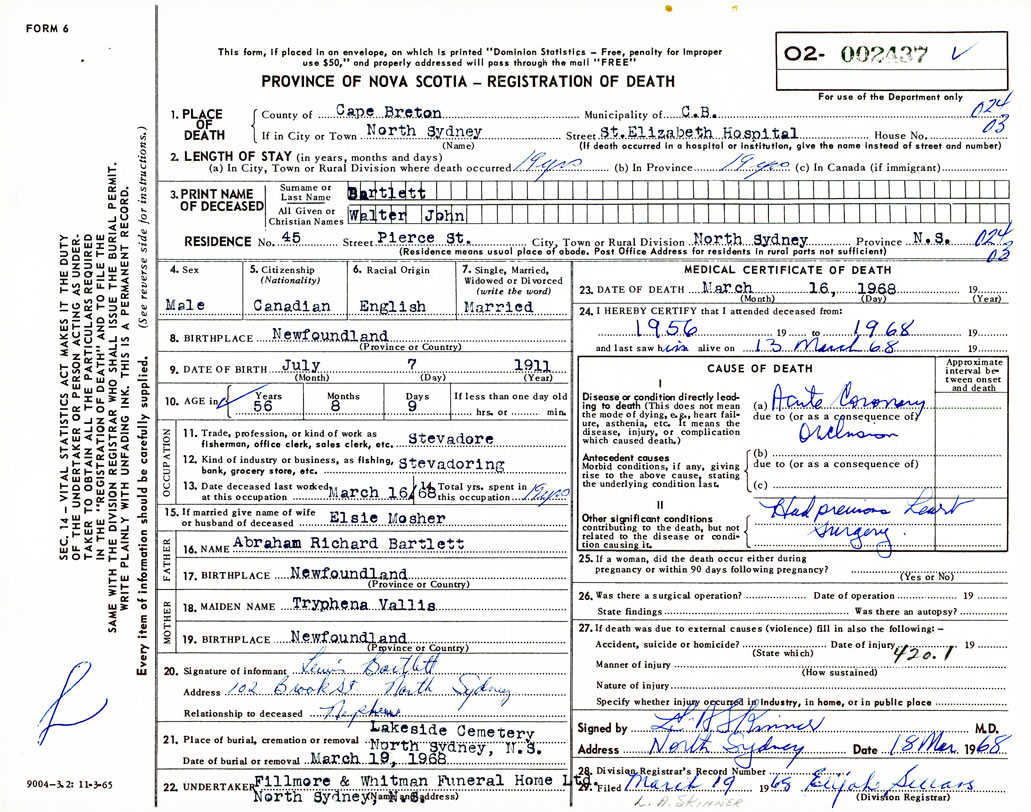 FORM 6
This form, if placed in an envelope, on which is printed "Dominion Statistics – Free, penalty for improper
use $50," and properly addressed will pass through the mail "FREE"
PROVINCE OF NOVA SCOTIA – REGISTRATION OF DEATH
O2- 002437 ✓
For use of the Department only
024
03
1. PLACE OF DEATH
County of Cape Breton Municipality of C.B.
If in City or Town North Sydney Street St.Elizabeth Hospital House No.
(Name) (If death occurred in a hospital or institution, give the name instead of street and number)
2. LENGTH OF STAY (in years, months and days)
(a) In City, Town or Rural Division where death occurred 19 yrs (b) In Province 19 yrs (c) In Canada (if immigrant)
3. PRINT NAME OF DECEASED
Surname or Last Name Bartlett
All Given or Christian Names Walter John
RESIDENCE No. 45 Street Pierce St. City, Town or Rural Division North Sydney Province N.S. 024
03
(Residence means usual place of abode. Post Office Address for residents in rural parts not sufficient)
4. Sex
Male
5. Citizenship
(Nationality)
Canadian
6. Racial Origin
English
7. Single, Married,
Widowed or Divorced
(write the word)
Married
8. BIRTHPLACE Newfoundland
(Province or Country)
9. DATE OF BIRTH July 7 1911
(Month) (Day) (Year)
10. AGE in ✓ Years Months Days If less than one day old
56 8 9 hrs. or min.
OCCUPATION
11. Trade, profession, or kind of work as
fisherman, office clerk, sales clerk, etc. Stevadore
12. Kind of industry or business, as fishing,
bank, grocery store, etc. Stevadoring
13. Date deceased last worked
at this occupation March 16/68
14. Total yrs. spent in
this occupation 19 yrs
15. If married give name of wife
or husband of deceased Elsie Mosher
FATHER
16. NAME Abraham Richard Bartlett
17. BIRTHPLACE Newfoundland
(Province or Country)
MOTHER
18. MAIDEN NAME Tryphena Vallis
19. BIRTHPLACE Newfoundland
(Province or Country)
20. Signature of informant Lewis Bartlett
Address 102 Brook St. North Sydney
Relationship to deceased Nephew
21. Place of burial, cremation or removal Lakeside Cemetery
North Sydney, N.S.
Date of burial or removal March 19, 1968
22. UNDERTAKER Fillmore & Whitman Funeral Home Ltd.
North Sydney, N.S.
(Name and address)
MEDICAL CERTIFICATE OF DEATH
23. DATE OF DEATH March 16, 1968 19
(Month) (Day) (Year)
24. I HEREBY CERTIFY that I attended deceased from:
1956 19 to 1968 19
and last saw him alive on 13 March 68 19
CAUSE OF DEATH
Approximate
interval be-
tween onset
and death
I
Disease or condition directly lead-
ing to death (This does not mean
the mode of dying, e.g., heart fail-
ure, asthenia, etc. It means the
disease, injury, or complication
which caused death.)
(a) Acute Coronary
due to (or as a consequence of)
Occlusion
Antecedent causes
Morbid conditions, if any, giving
rise to the above cause, stating
the underlying condition last.
(b)
due to (or as a consequence of)
(c)
II
Other significant conditions
contributing to the death, but not
related to the disease or condi-
tion causing it.
Had previous heart
surgery.
25. If a woman, did the death occur either during
pregnancy or within 90 days following pregnancy?
(Yes or No)
26. Was there a surgical operation? Date of operation 19
State findings Was there an autopsy?
27. If death was due to external causes (violence) fill in also the following: –
Accident, suicide or homicide? Date of injury 19
(State which) 420.1
Manner of injury
(How sustained)
Nature of injury
Specify whether injury occurred in Industry, in home, or in public place
Signed by L. A. Skinner M.D.
Address North Sydney Date 18 Mar. 1968
28. Division Registrar's Record Number
29. Filed March 19 1968 Elijah Sellars
(Division Registrar)
L. A. SKINNER
SEC. 14 – VITAL STATISTICS ACT MAKES IT THE DUTY
OF THE UNDERTAKER OR PERSON ACTING AS UNDER-
TAKER TO OBTAIN ALL THE PARTICULARS REQUIRED
IN THE "REGISTRATION OF DEATH" AND TO FILE THE
SAME WITH THE DIVISION REGISTRAR WHO SHALL ISSUE THE BURIAL PERMIT.
WRITE PLAINLY WITH UNFADING INK. THIS IS A PERMANENT RECORD.
Every item of information should be carefully supplied. (See reverse side for instructions.)
9004-3.2: 11-3-65